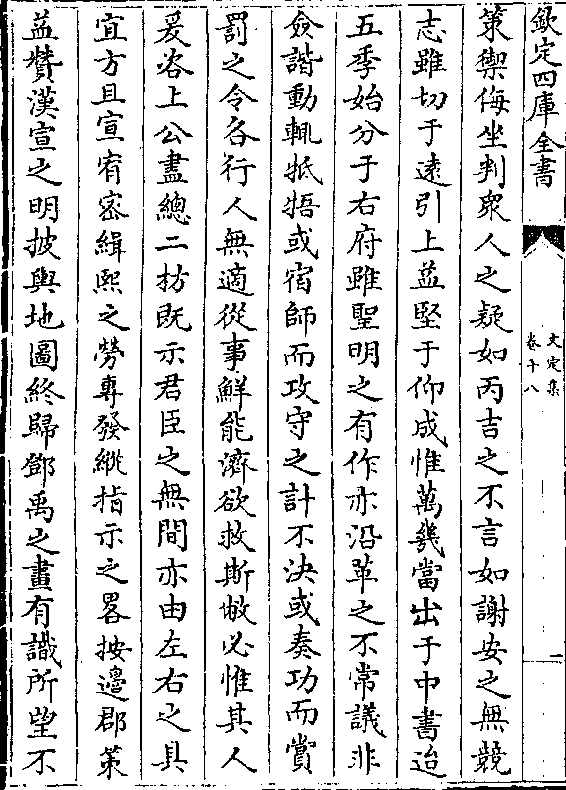 欽定四庫全書
文定集
卷十八
一
策禦侮坐判衆人之疑如丙吉之不言如謝安之無競
志雖切于遠引上益堅于仰成惟萬幾當出于中書迨
五季始分于右府雖聖明之有作亦沿革之不常議非
僉諧動輒牴牾或宿師而攻守之計不決或奏功而賞
罰之令各行人無適從事鮮能濟欲救斯弊必惟其人
爰咨上公盡總二柄既示君臣之無間亦由左右之具
宜方且宣宥密緝熙之勞專發縱指示之畧按邊郡策
益贊漢宣之明披輿地圖終歸鄧禹之畫有識所望不